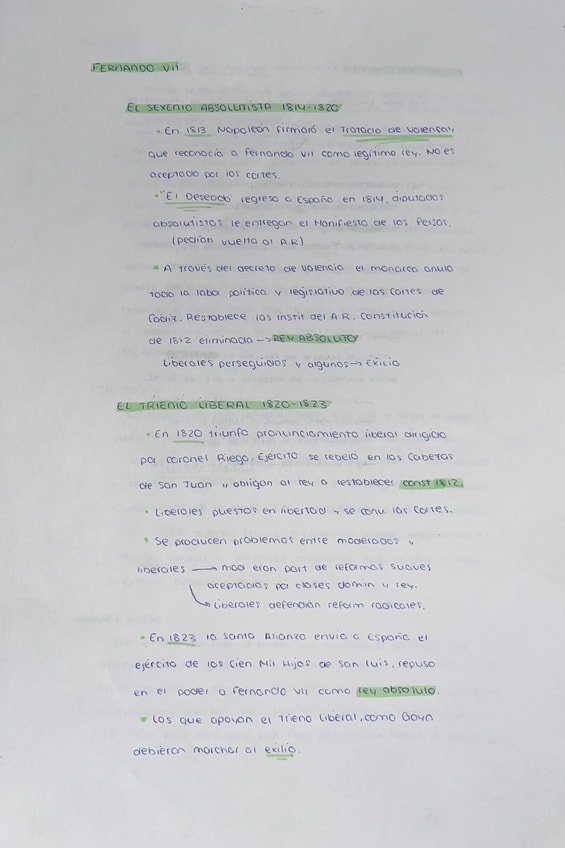 FERNANDO VII
EL SEXENIO ABSOLUTISTA 1814-1820
• En 1813 Napoleón firmará el Tratado de Valençay
que reconocía a Fernando VII como legítimo rey. No es
aceptado por las cortes.
• "El Deseado" regresa a España en 1814, diputados
absolutistas le entregan el Manifiesto de los Persas,
(pedían vuelta al A.R)
• A través del decreto de Valencia el monarca anula
toda la labor política y legislativa de las Cortes de
Cádiz. Restablece las instit del A.R. Constitución
de 1812 eliminada → REY ABSOLUTO
Liberales perseguidos y algunos → Exilio
EL TRIENIO LIBERAL 1820-1823
• En 1820 triunfa pronunciamiento liberal dirigido
por coronel Riego. Ejército se rebeló en las Cabezas
de San Juan y obligan al rey a restablecer const 1812.
• Liberales puestos en libertad y se conv. las Cortes.
• Se producen problemas entre moderados y
liberales → mod eran part de reformas suaves
aceptadas por clases domin y rey.
→ liberales defendían reform radicales.
• En 1823 la Santa Alianza envía a España el
ejército de los Cien Mil Hijos de San Luis, repuso
en el poder a Fernando VII como rey absoluto.
• Los que apoyan el Trieno Liberal, como Goya
debieran marchar al exilio.